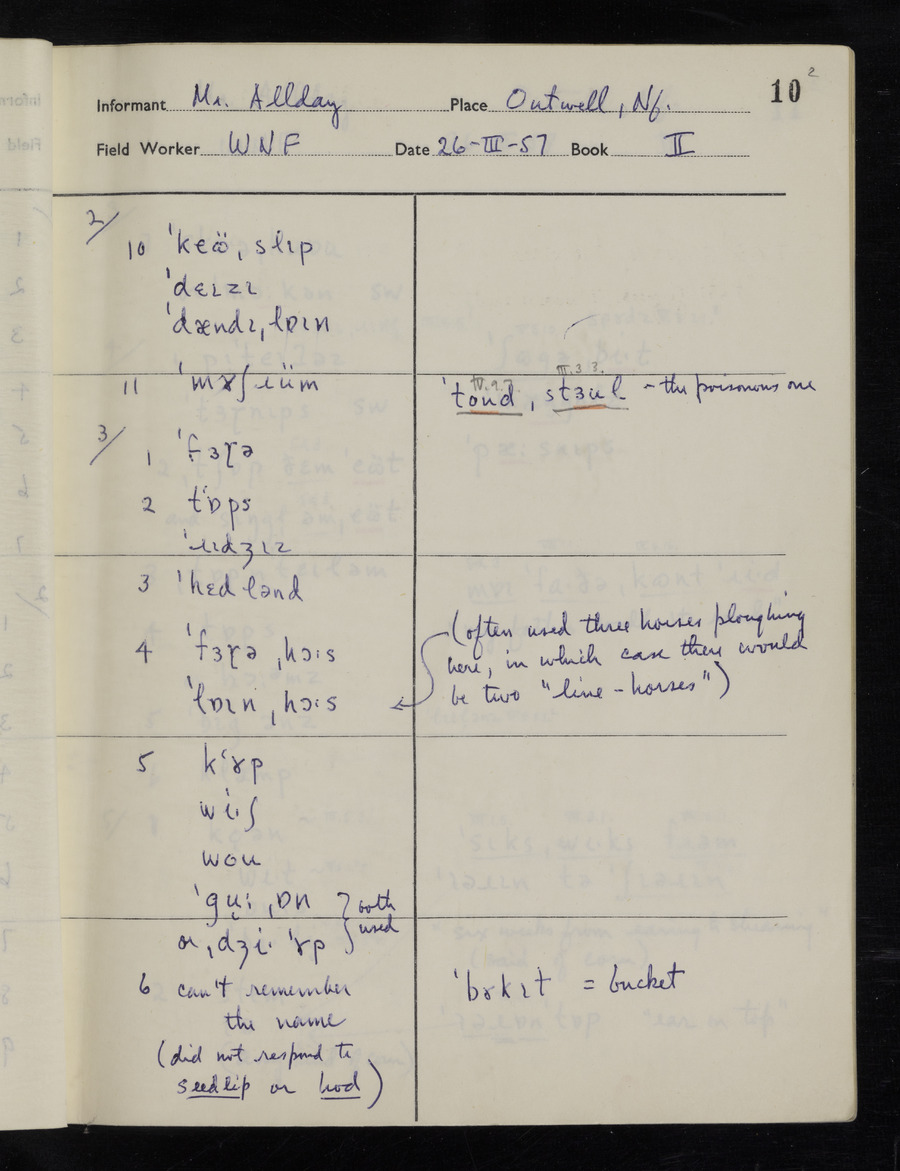 10 2
Informant Mr. Allday Place Outwell, Nf.
Field Worker WNF Date 26-III-57 Book II
2/
10 ˈkɛɷ̈ˌslɪp
ˈdɛɪzɪ
ˈdændɪˌlɒɪn
11 ˈmɤʃɹüm
IV.9.7. III.3.3.
ˈtoud ˌstɜul ~ the poisonous one
3/
1 ˈfɜɽə
2 tʻɒps
ˈɹɪdʒɪz
3 ˈhɛdlənd
4 ˈfɜɽəˌhɔ:s
ˈlɒɪnˌhɔ:s
(often used three horses ploughing
here, in which case there would
be two "line-horses")
5 kʻɤp
wi·ʃ
wou
ˈgu̧:ˌɒn } both
or ˌdʒi·ˈɤp } used
6 can't remember
the name
(did not respond to
seedlip or hod)
ˈbɤkɪt = bucket